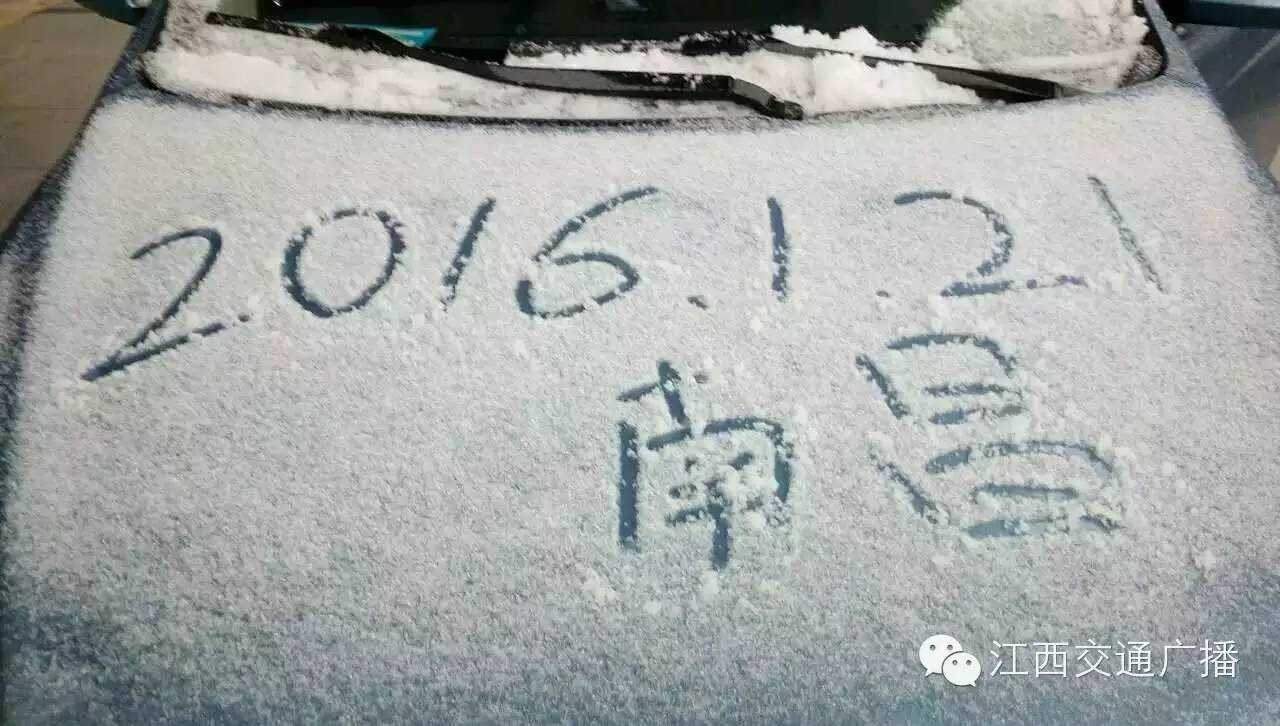 2016.1.21
南昌
江西交通广播